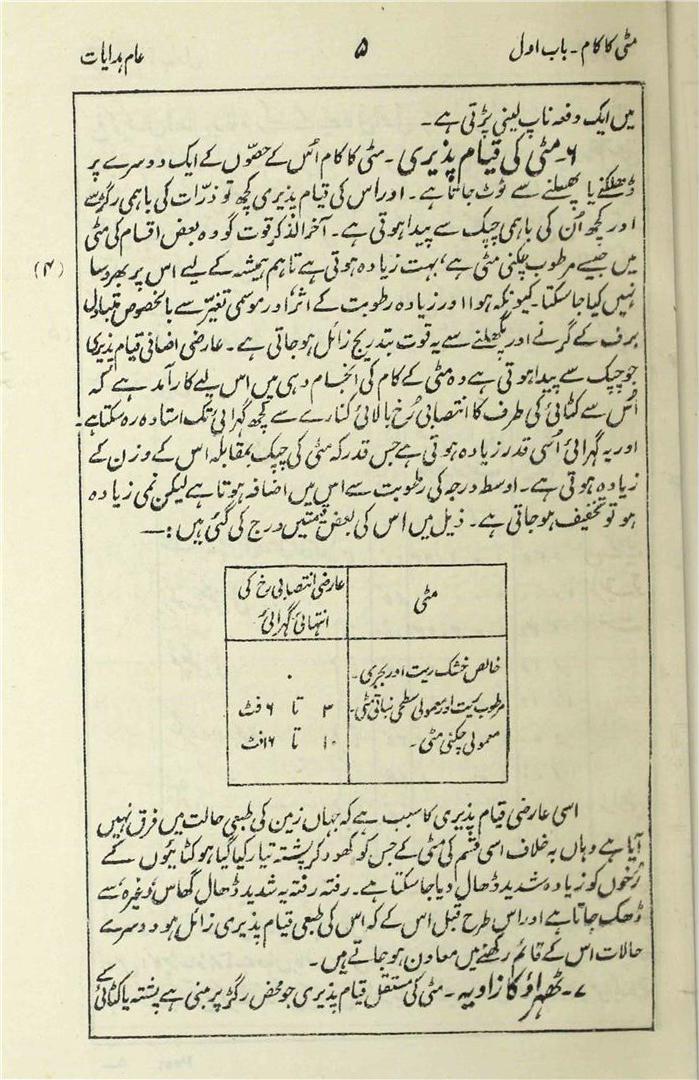 مٹی کا کام۔ باب اول ۵ عام ہدایات
میں ایک دفعہ ناپ لینی پڑتی ہے۔
۶۔ مٹی کی قیام پذیری۔ مٹی کا کام اُس کے حصّوں کے ایک دوسرے پر
ڈھلکنے یا پھسلنے سے ٹوٹ جاتا ہے۔ اور اس کی قیام پذیری کچھ تو ذرّات کی باہمی رگڑ سے
اور کچھ اُن کی باہمی چپک سے پیدا ہوتی ہے۔ آخر الذکر قوت گو وہ بعض اقسام کی مٹی
میں جیسے مرطوب چکنی مٹی ہے، بہت زیادہ ہوتی ہے تاہم ہمیشہ کے لیے اس پر بھروسا
(۴)
نہیں کیا جا سکتا۔ کیونکہ ہوا اور زیادہ رطوبت کے اثر، اور موسمی تغیّر سے بالخصوص متبادل
برف کے گرنے اور پگھلنے سے یہ قوت بتدریج زائل ہو جاتی ہے۔ عارضی اضافی قیام پذیری
جو چپک سے پیدا ہوتی ہے وہ مٹی کے کام کی انجام دہی میں اس لیے کار آمد ہے کہ
اُس سے کٹائی کی طرف کا انتصابی رُخ بالائی کنارے سے کچھ گہرائی تک استادہ رہ سکتا ہے۔
اور یہ گہرائی اُسی قدر زیادہ ہوتی ہے جس قدر کہ مٹی کی چپک بمقابلہ اس کے وزن کے
زیادہ ہوتی ہے۔ اوسط درجہ کی رطوبت سے اس میں اضافہ ہوتا ہے لیکن نمی زیادہ
ہو تو تخفیف ہو جاتی ہے۔ ذیل میں اس کی بعض قیمتیں درج کی گئی ہیں :—
مٹی عارضی انتصابی رخ کی
انتہائی گہرائی
خالص خشک ریت اور بجری۔ ۰
مرطوب ریت اور معمولی سطحی نباتی مٹی۔ ۳ تا ۶ فٹ
معمولی چکنی مٹی۔ ۱۰ تا ۱۶ فٹ
اسی عارضی قیام پذیری کا سبب ہے کہ جہاں زمین کی طبعی حالت میں فرق نہیں
آیا ہے وہاں بہ خلاف اسی قسم کی مٹی کے جس کو کھود کر پشتہ تیار کیا گیا ہو کٹائیوں کے
رُخوں کو زیادہ شدید ڈھال دیا جا سکتا ہے۔ رفتہ رفتہ یہ شدید ڈھال گھاس وغیرہ سے
ڈھک جاتا ہے اور اس طرح قبل اس کے کہ اس کی طبعی قیام پذیری زائل ہو دوسرے
حالات اس کے قائم رکھنے میں معاون ہو جاتے ہیں۔
۷۔ ٹھہراؤ کا زاویہ۔ مٹی کی مستقل قیام پذیری جو محض رگڑ پر مبنی ہے پشتہ یا کٹائی کے